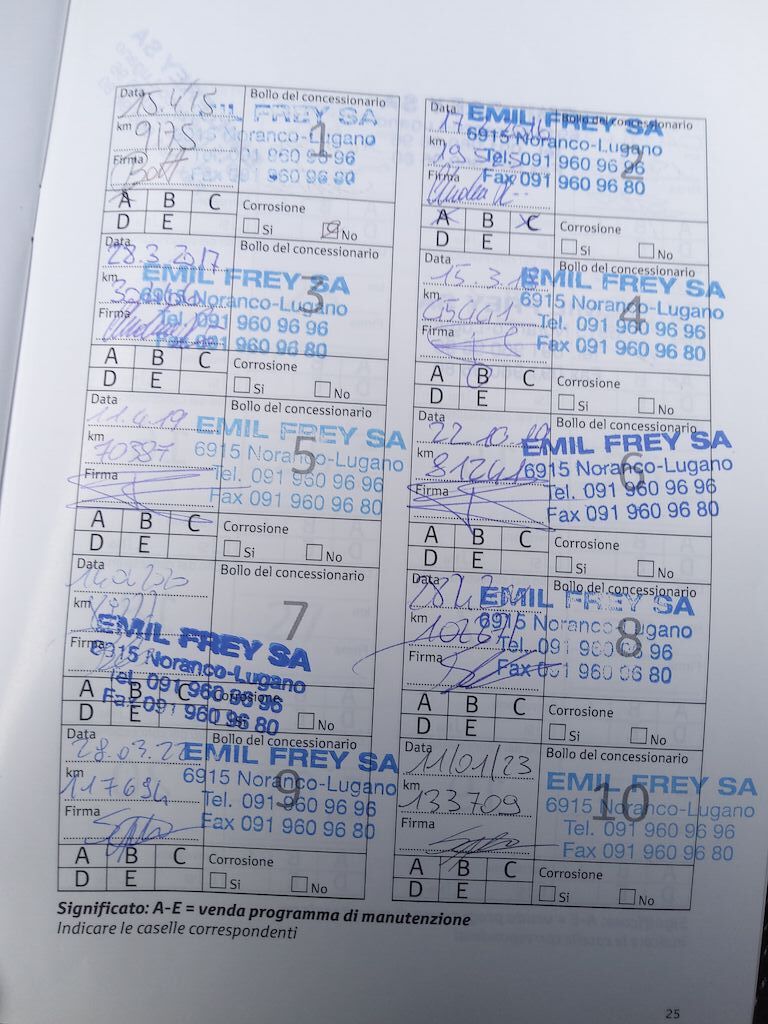 Data Bollo del concessionario
15.4.15
EMIL FREY SA
km 9175
6915 Noranco-Lugano
1
Tel. 091 960 96 96
Firma
Fax 091 960 96 80
A B C Corrosione
D E Si No
Data Bollo del concessionario
17
EMIL FREY SA
6915 Noranco-Lugano
km
2
Tel. 091 960 96 96
Firma
Fax 091 960 96 80
A B C Corrosione
D E Si No
Data Bollo del concessionario
28.3.2017
EMIL FREY SA
km
3
6915 Noranco-Lugano
Firma
Tel. 091 960 96 96
Fax 091 960 96 80
A B C Corrosione
D E Si No
Data Bollo del concessionario
15.3.18
EMIL FREY SA
km
4
6915 Noranco-Lugano
Firma
Tel. 091 960 96 96
Fax 091 960 96 80
A B C Corrosione
D E Si No
Data Bollo del concessionario
11.4.19
EMIL FREY SA
km 70887
5
6915 Noranco-Lugano
Firma
Tel. 091 960 96 96
Fax 091 960 96 80
A B C Corrosione
D E Si No
Data Bollo del concessionario
22.10
EMIL FREY SA
km 81241
6
6915 Noranco-Lugano
Firma
Tel. 091 960 96 96
Fax 091 960 96 80
A B C Corrosione
D E Si No
Data Bollo del concessionario
km
7
EMIL FREY SA
Firma
6915 Noranco-Lugano
Tel. 091 960 96 96
A B C Corrosione
Fax 091 960 96 80
D E No
Data Bollo del concessionario
EMIL FREY SA
km
8
6915 Noranco-Lugano
Tel. 091 960 96 96
Firma
Fax 091 960 96 80
A B C Corrosione
D E Si No
Data Bollo del concessionario
28.03.22
EMIL FREY SA
km 117694
9
6915 Noranco-Lugano
Tel. 091 960 96 96
Firma
Fax 091 960 96 80
A B C Corrosione
D E Si No
Data Bollo del concessionario
11/01/23
EMIL FREY SA
km 133709
10
6915 Noranco-Lugano
Firma
Tel. 091 960 96 96
Fax 091 960 96 80
A B C Corrosione
D E Si No
Significato: A-E = venda programma di manutenzione
Indicare le caselle correspondenti
25